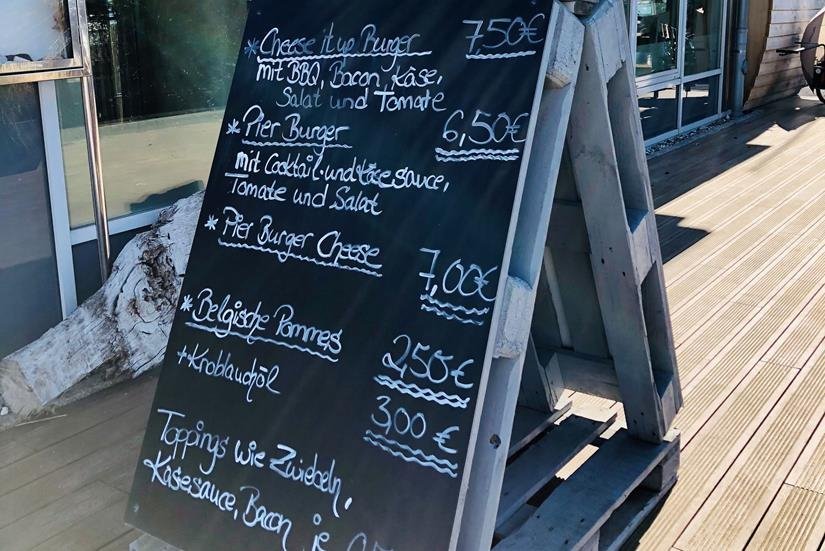 * Cheese it up Burger 7,50€
mit BBQ, Bacon, Käse,
Salat und Tomate
* Pier Burger 6,50€
mit Cocktail-und Käsesauce,
Tomate und Salat
* Pier Burger Cheese 7,00€
* Belgische Pommes 2,50€
++Knoblauchöl 3,00€
Toppings wie Zwiebeln,
Käsesauce, Bacon je